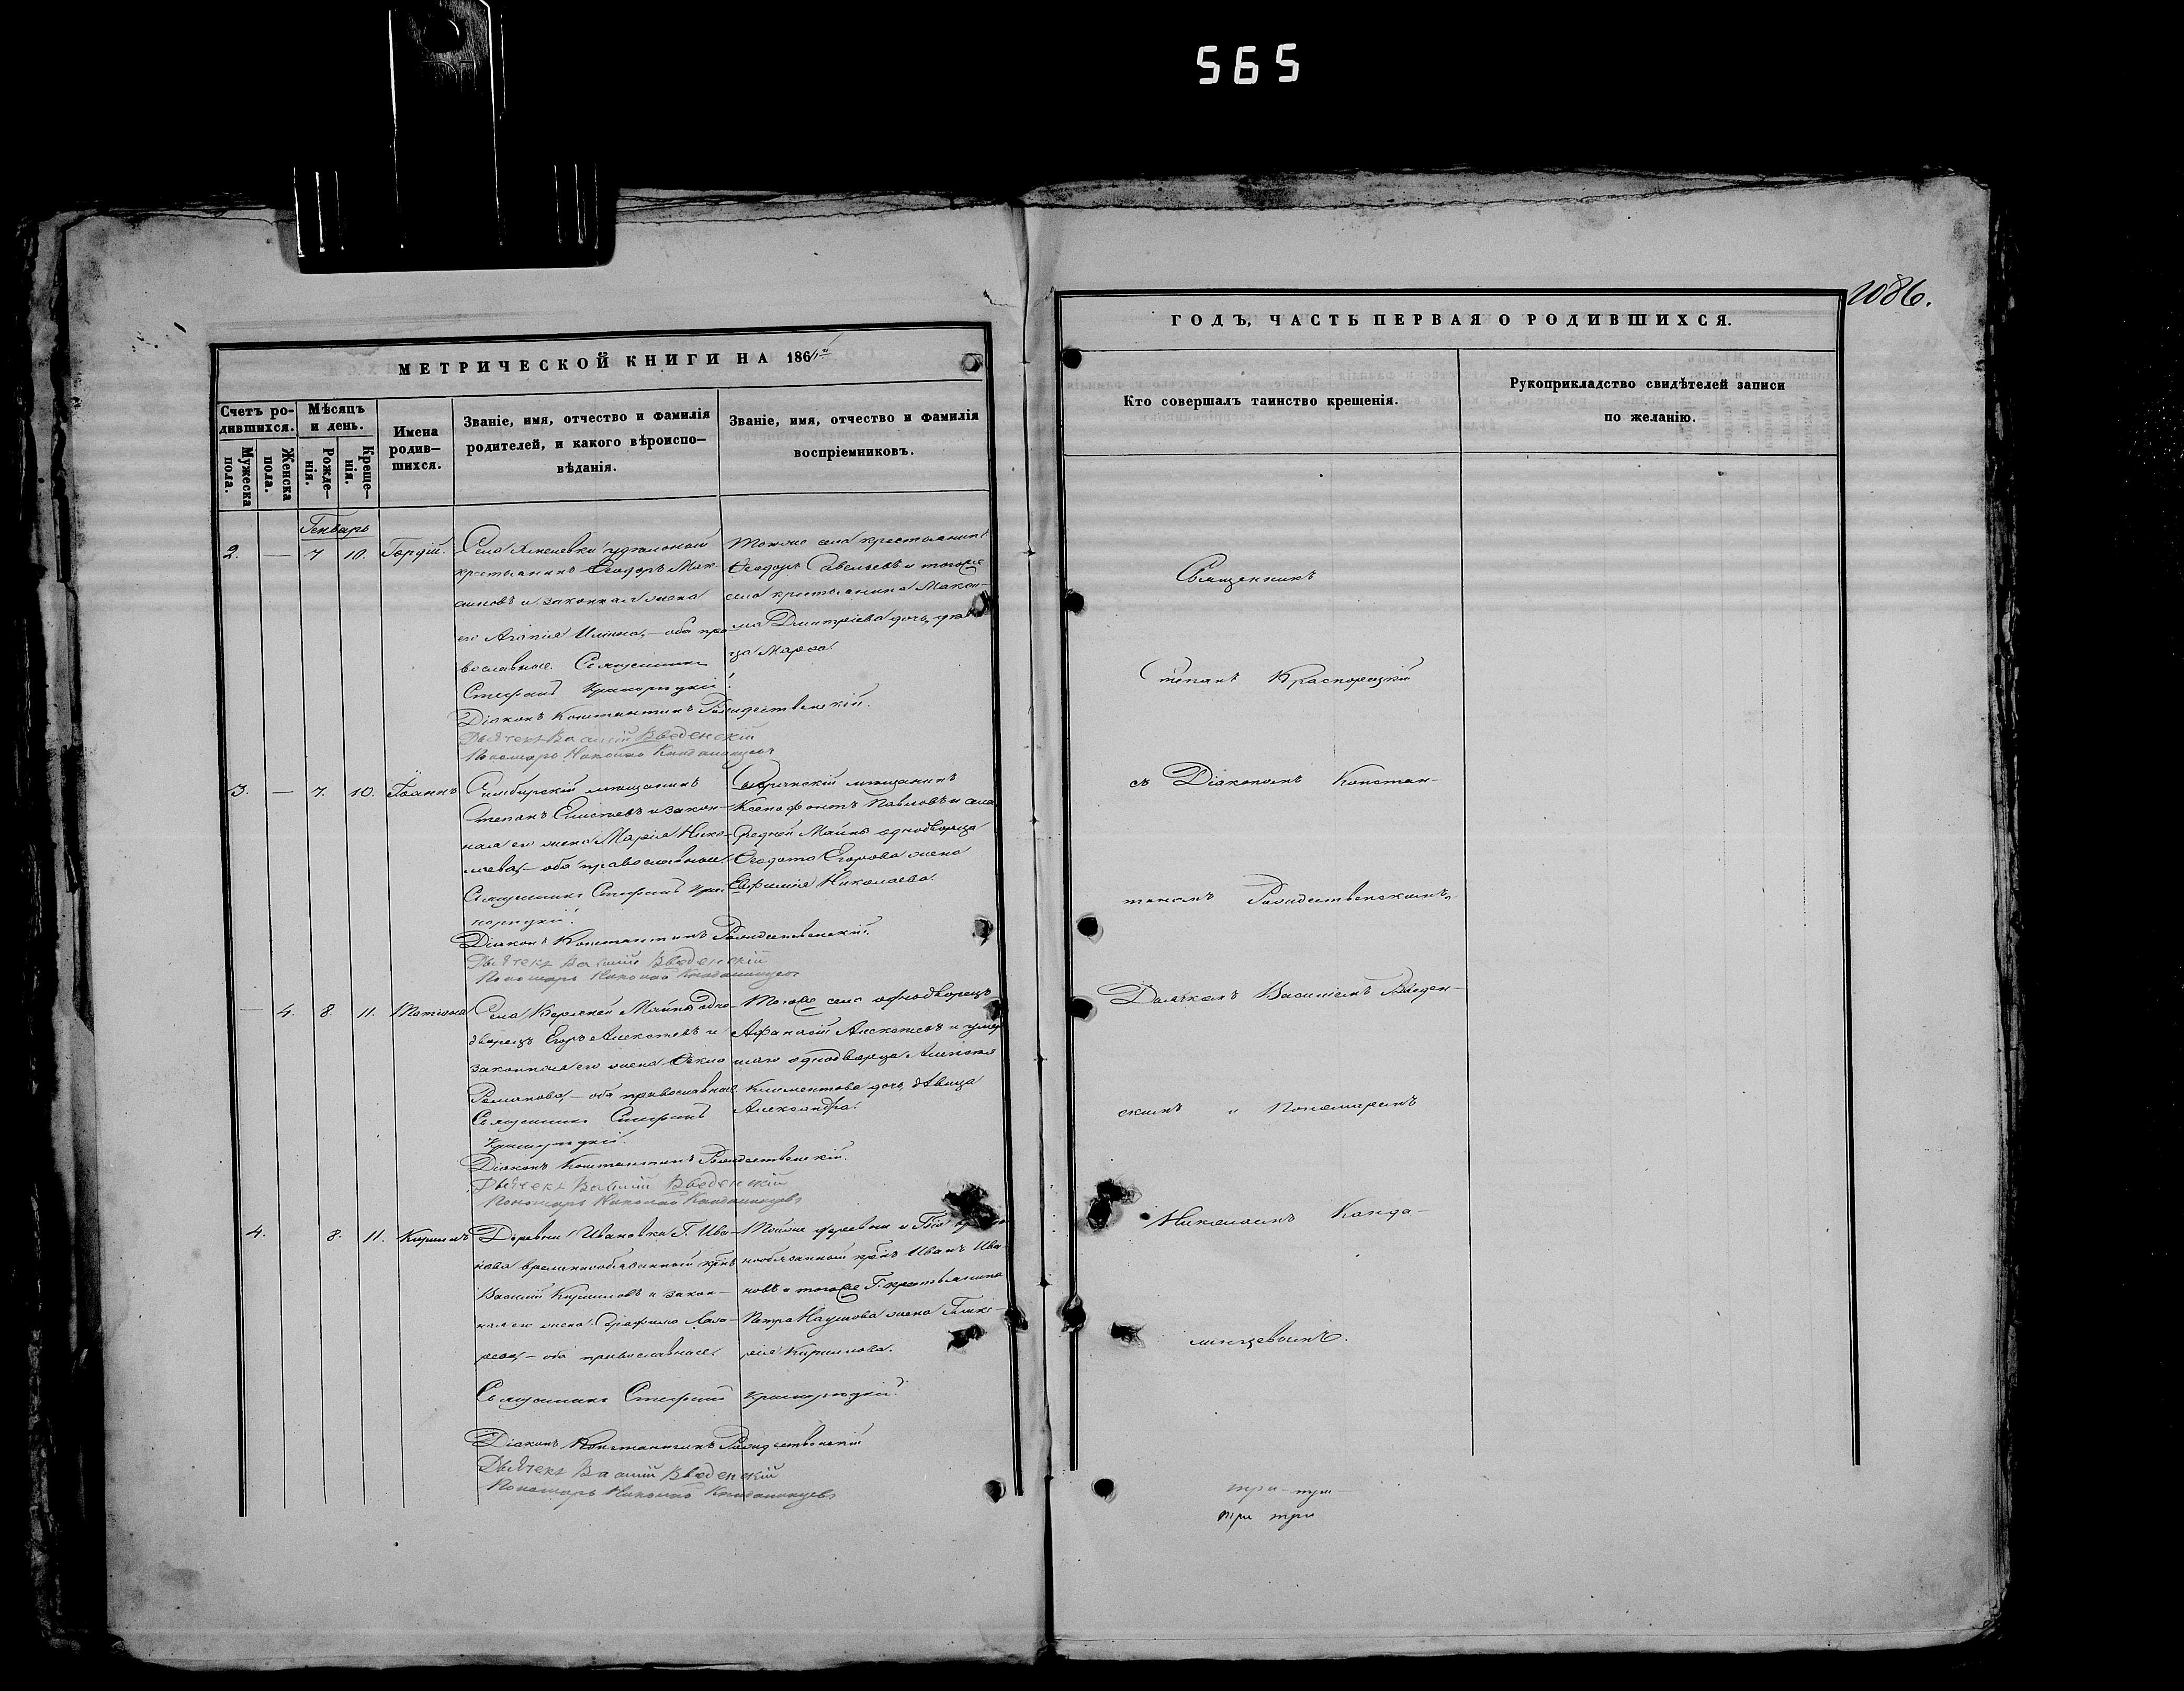 565
1086.
МЕТРИЧЕСКОЙ КНИГИ НА 186
Счетъ ро-
дившихся.
Мужеска
пола.
Женска
пола.
Мѣсяцъ
и день.
Рожде-
нія.
Креще-
нія.
Имена
родив-
шихся.
Званіе, имя, отчество и фамилія
родителей, и какого вѣроиспо-
вѣданія.
Званіе, имя, отчество и фамилія
воспріемниковъ.
Генварь
2. — 7 10. Гордій.
Села удѣльной
крестьянинъ Ѳеодоръ Мак-
симовъ и законная жена
его Агапія — оба пра-
вославные. Священникъ
Стефанъ
Діаконъ Константинъ Рождественскій.
Дьячекъ Василій Введенскій
Пономарь Николай
Тогоже села крестьянинъ
Ѳеодоръ Савельевъ и тогоже
села крестьянина Макси-
ма Дмитріева дочь, дѣви-
ца Марѳа.
3. — 7. 10. Іоаннъ
Симбирскій мѣщанинъ
Степанъ и закон-
ная его жена Марія Нико-
лаева, — оба православные.
Священникъ Стефанъ
Діаконъ Константинъ Рождественскій.
Дьячекъ Василій Введенскій
Пономарь Николай
мѣщанинъ
Ксенофонтъ Павловъ и села
Майны однодворца
Ѳеодота Егорова жена
Евфимія Николаева.
— 4. 8. 11. Матрона
Села Майны одно-
дворецъ Егоръ Алексѣевъ и
законная его жена Ѳекла
Романова, — оба православные.
Священникъ Стефанъ
Діаконъ Константинъ Рождественскій.
Дьячекъ Василій Введенскій
Пономарь Николай
Тогоже села однодворецъ
Афанасій Алексѣевъ и умер-
шаго однодворца Алексѣя
Климентова дочь, дѣвица
Александра.
4. 8. 11. Кириллъ
Деревни Ивановки Г. Ива-
нова временнообязанный
Василій Кирилловъ и закон-
ная его жена Лаза-
рева, — оба православные.
Священникъ Стефанъ
Діаконъ Константинъ Рождественскій
Дьячекъ Василій Введенскій
Пономарь Николай
Тойже деревни и
нообязанный Иванъ Ива-
новъ и тогоже Г. крестьянина
Петра Наумова жена Глике-
рія Кириллова.
ГОДЪ, ЧАСТЬ ПЕРВАЯ О РОДИВШИХСЯ.
Кто совершалъ таинство крещенія.
Рукоприкладство свидѣтелей записи
по желанію.
Священникъ
Степанъ Краснорецкій
съ Діакономъ Констан-
тиномъ Рождественскимъ,
Дьячкомъ Василіемъ Введен-
скимъ и Пономаремъ
Николаемъ Канда-
линцевымъ.
три три
три три